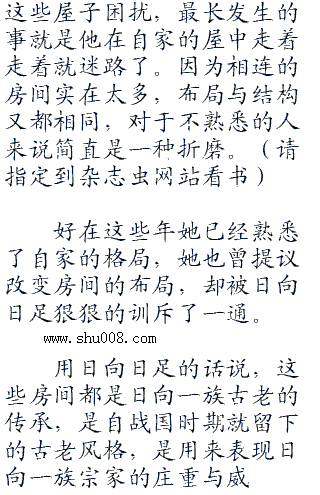 这些屋子困扰，最长发生的
事就是他在自家的屋中走着
走着就迷路了。因为相连的
房间实在太多，布局与结构
又都相同，对于不熟悉的人
来说简直是一种折磨。（请
指定到杂志虫网站看书）
好在这些年她已经熟悉
了自家的格局，她也曾提议
改变房间的布局，却被日向
日足狠狠的训斥了一通。
www.shu008.com
用日向日足的话说，这
些房间都是日向一族古老的
传承，是自战国时期就留下
的古老风格，是用来表现日
向一族宗家的庄重与威